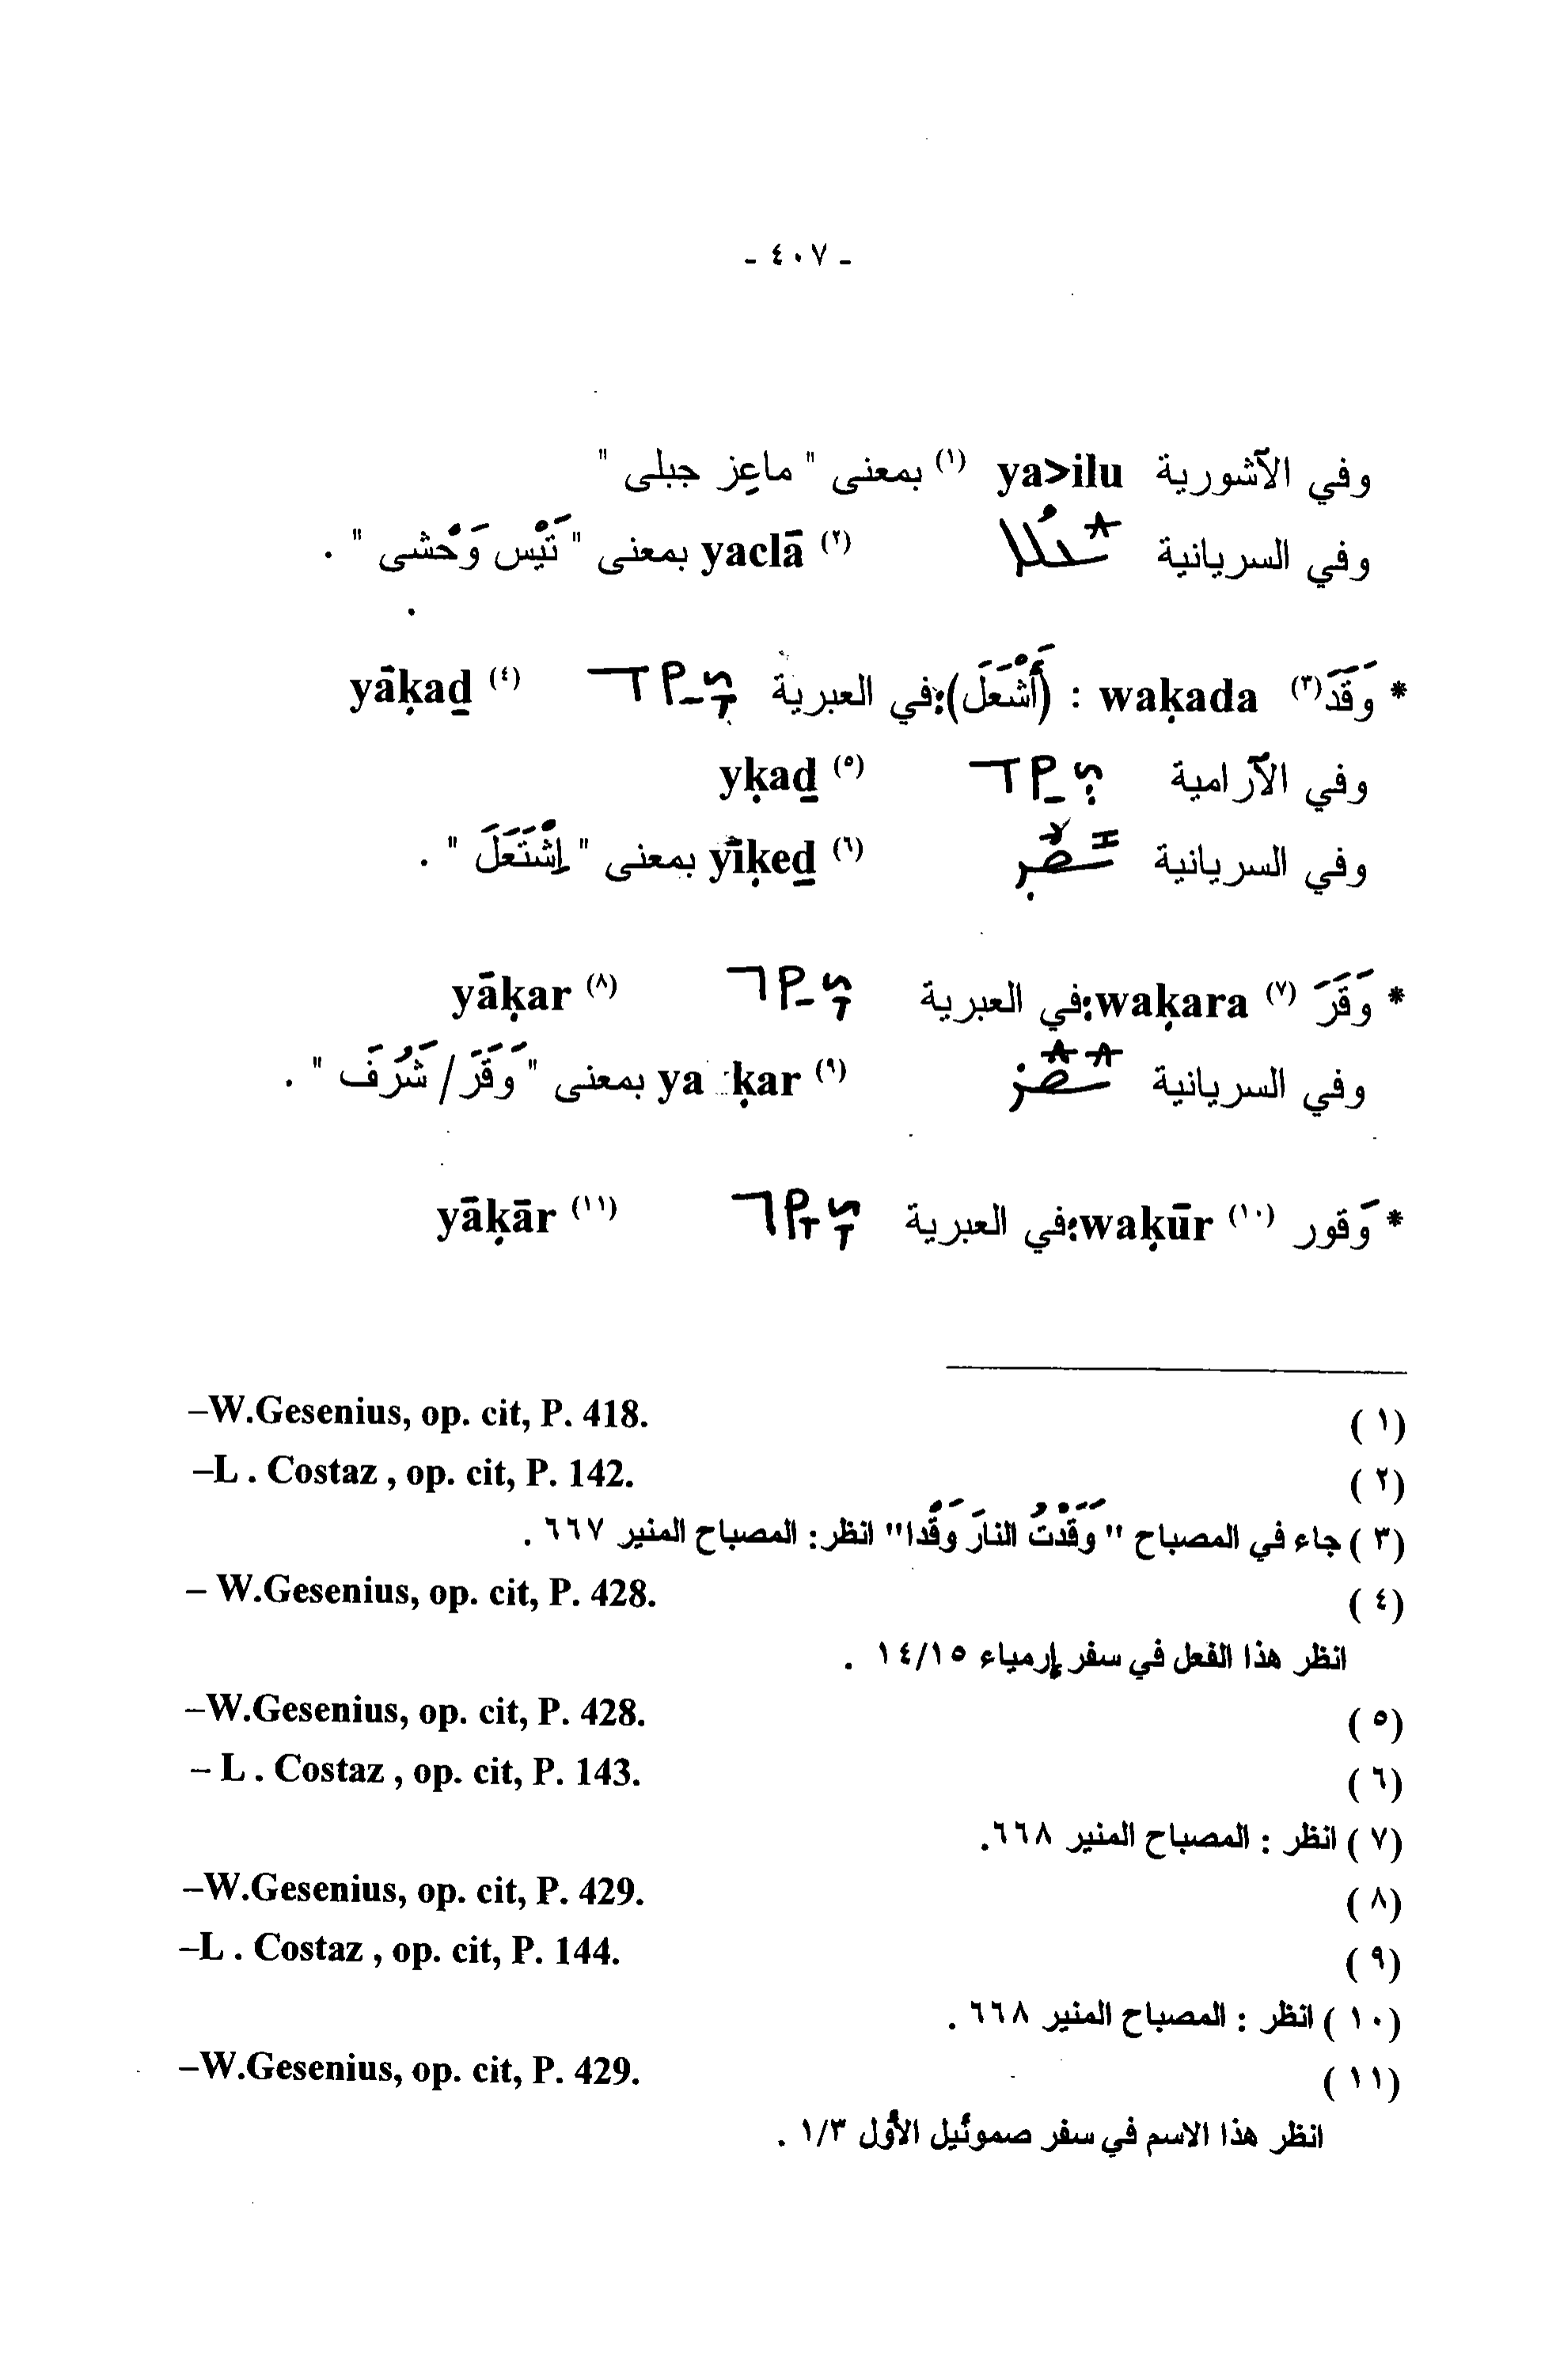 - ٤٠٧ -
وفي الآشورية ya>ilu (١) بمعنى " ماعِز جبلى "
وفي السريانية ܝܰܥܠܳܐ yaclā (٢) بمعنى " تَيْس وَحْشى " .
* وَقَدَ(٣) waḳada : (أَشْعَلَ)؛في العبرية יָקַד yāḳaḏ (٤)
وفي الآرامية יְקַד yḳaḏ (٥)
وفي السريانية ܝܺܩܶܕ yīḳeḏ (٦) بمعنى " اِشْتَعَلَ " .
* وَقَرَ (٧) waḳara؛في العبرية יָקַר yāḳar (٨)
وفي السريانية ܝܰܩܰܪ ya ḳar (٩) بمعنى " وَقَرَ / شَرُفَ " .
* وَقور (١٠) waḳūr؛في العبرية יָקָר yāḳār (١١)
(١) –W.Gesenius, op. cit, P. 418.
(٢) –L . Costaz , op. cit, P. 142.
(٣) جاء في المصباح " وَقَدْتُ النارَ وَقْدا" انظر: المصباح المنير ٦٦٧ .
(٤) – W.Gesenius, op. cit, P. 428.
انظر هذا الفعل في سفر إرمياء ١٤/١٥ .
(٥) –W.Gesenius, op. cit, P. 428.
(٦) – L . Costaz , op. cit, P. 143.
(٧) انظر : المصباح المنير ٦٦٨.
(٨) –W.Gesenius, op. cit, P. 429.
(٩) –L . Costaz , op. cit, P. 144.
(١٠) انظر : المصباح المنير ٦٦٨ .
(١١) –W.Gesenius, op. cit, P. 429.
انظر هذا الاسم في سفر صموئيل الأول ١/٣ .